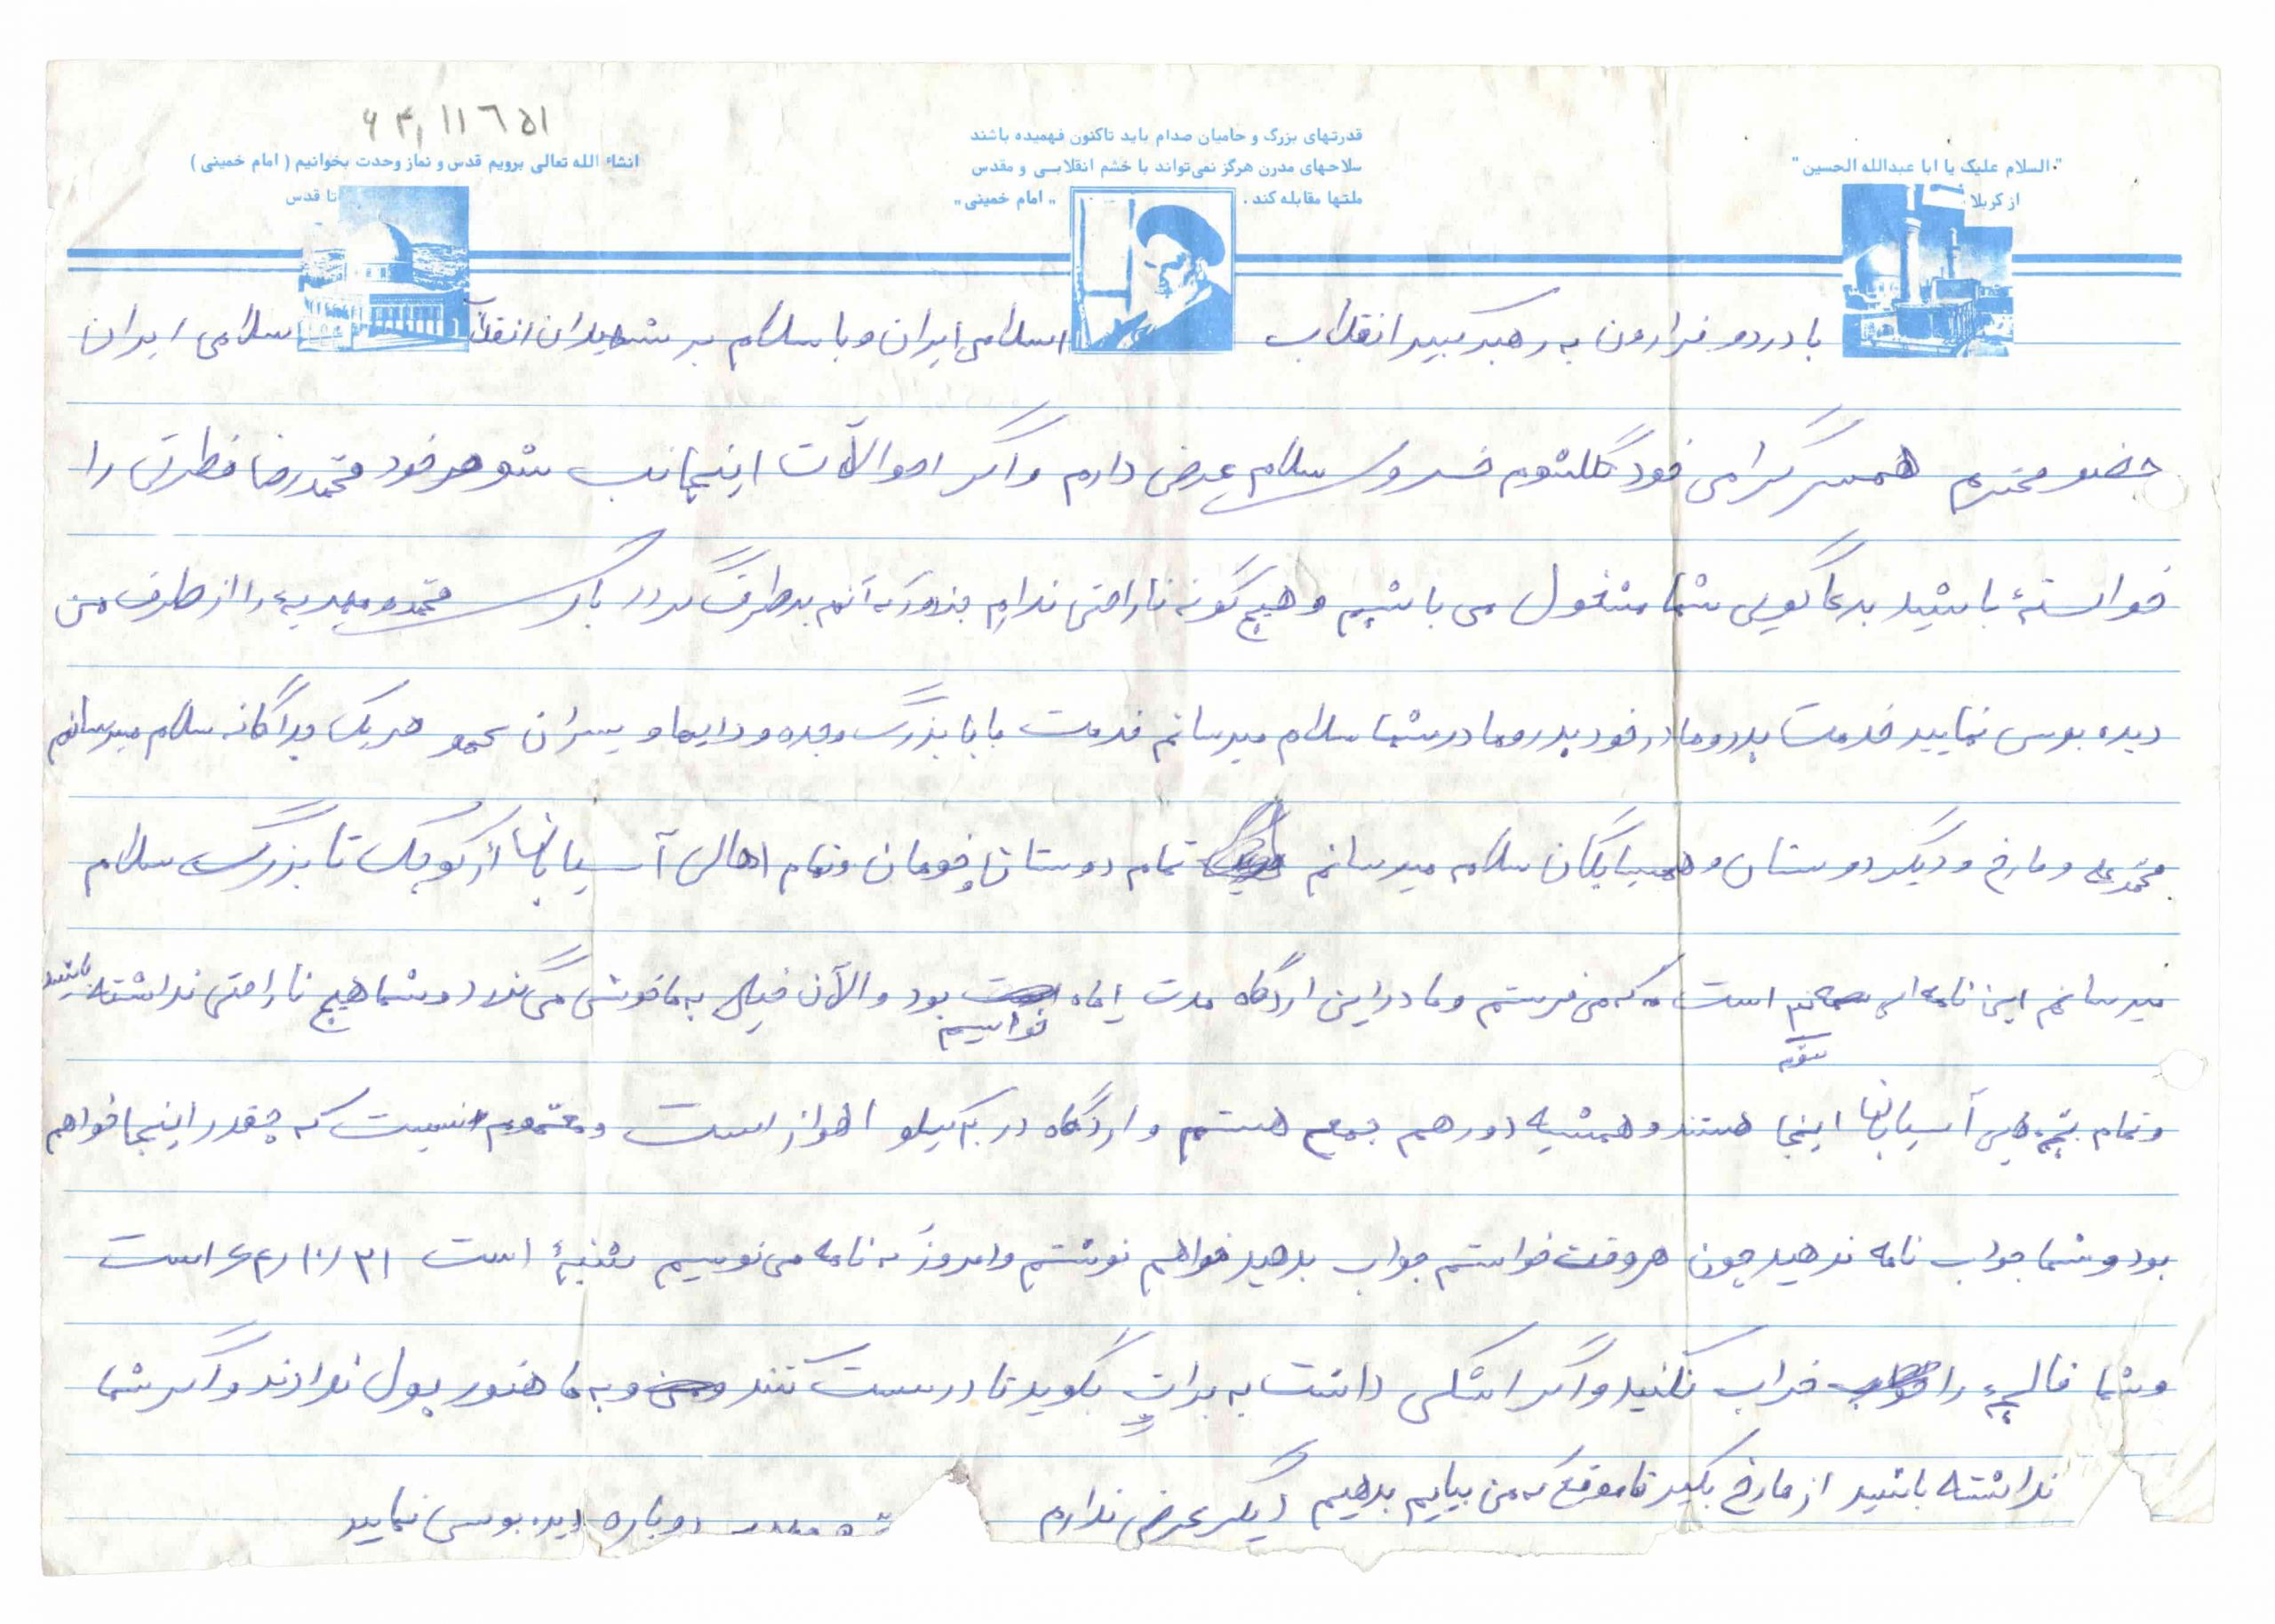 ۶۴,۱۱۶۵۱
"السلام علیک یا ابا عبدالله الحسین"
از کربلا
قدرتهای بزرگ و حامیان صدام باید تاکنون فهمیده باشند
سلاحهای مدرن هرگز نمی‌تواند با خشم انقلابی و مقدس
ملتها مقابله کند. "امام خمینی"
انشاء الله تعالی برویم قدس و نماز وحدت بخوانیم (امام خمینی)
تا قدس
با دردو فرارون به رهبر کبیر انقلاب اسلامی ایران و با سلام بر شهیدان انقلاب سلامی ایران
حضو محترم همسر گرامی خود گلثوم خسروی سلام عرض دارم و اگر احوالات اینجانب شوهر خود محمدرضا فطرتی را
خواستهٔ باشید بدعاگویی شما مشغول می باشیم و هیچ گونه ناراحتی ندارم بدطرف گردد محمد و مهدیه را از طرف من
دیده بوسی نمایید خدمت پدر و مادر خود پدر و مادر شما سلام میرسانم خدمت بابا بزرگ وجده و دایها و پسران عمو هر یک جداگانه سلام میرسانم
محمدعلی و مارخ و دیگر دوستان و همسایگان سلام میرسانم تمام دوستان و تمام اهالی آسیابانها از کوچک تا بزرگ سلام
میرسانم این نامه ای است که می فرستم و ما در این اردگاه مدت ۱ماه خواسیم بود و الآن خیلی به ما خوشی می گذرد و شما هیچ ناراحتی نداشته باشید
و تمام بچه هایی آسیابانها اینجا هستند و همشیه دور هم جمع هستم و اردگاه در ۲۰ کیلو اهواز است و معلوم نیست که چقدر اینجا خواهم
بود و شما جواب نامه ندهید چون هر وقت خواستم جواب بدهید خواهم نوشتم و امروز که نامه می نویسیم شنبهٔ است ۶۴/۱۰/۲۱ است
و شما قالیچهٔ را خراب نکنید و اگر اشکلی داشت به برات بگوید تا درست کند و به ما هنور پول ندادند و اگر شما
نداشته باشید از مارخ بگیر تا موقع که من بیایم بدهیم دیگر عرضی ندارم دوباره دیده بوسی نمایید